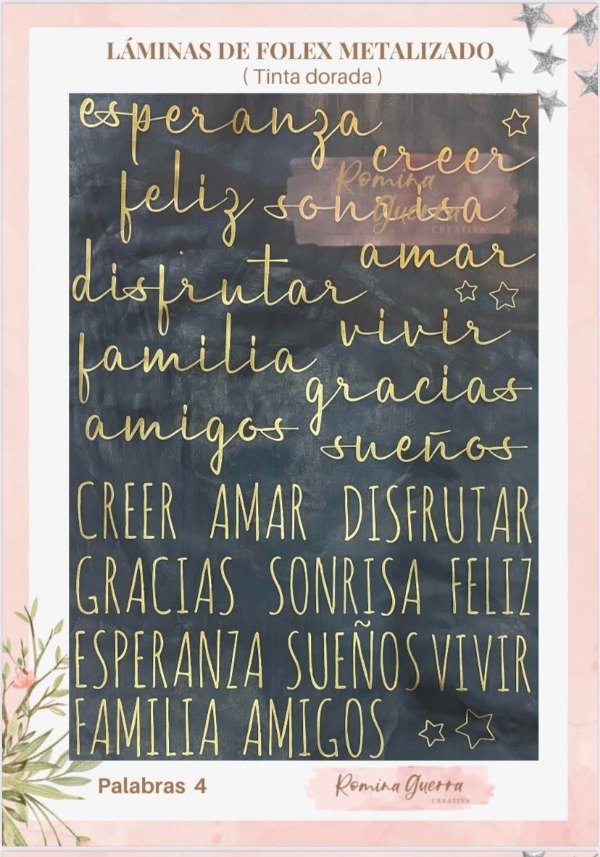 LÁMINAS DE FOLEX METALIZADO
( Tinta dorada )
esperanza
creer
Romina
feliz sonrisa
Guerra
CREATIVA
amar
disfrutar
vivir
familia
gracias
amigos
sueños
CREER AMAR DISFRUTAR
GRACIAS SONRISA FELIZ
ESPERANZA SUEÑOS VIVIR
FAMILIA AMIGOS
Palabras 4
Romina Guerra
CREATIVA